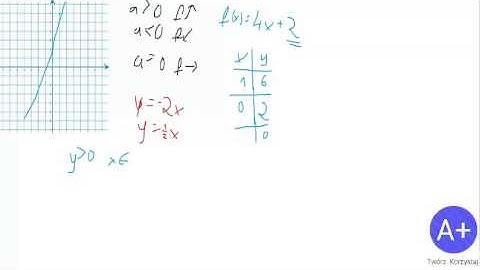 a>0 f↑
a<0 f↓
a=0 f→
y=-2x
y=½x
y>0 x∈
f(x)=4x+2
x y
1 6
0 2
0
A+
Twórz Korzystaj